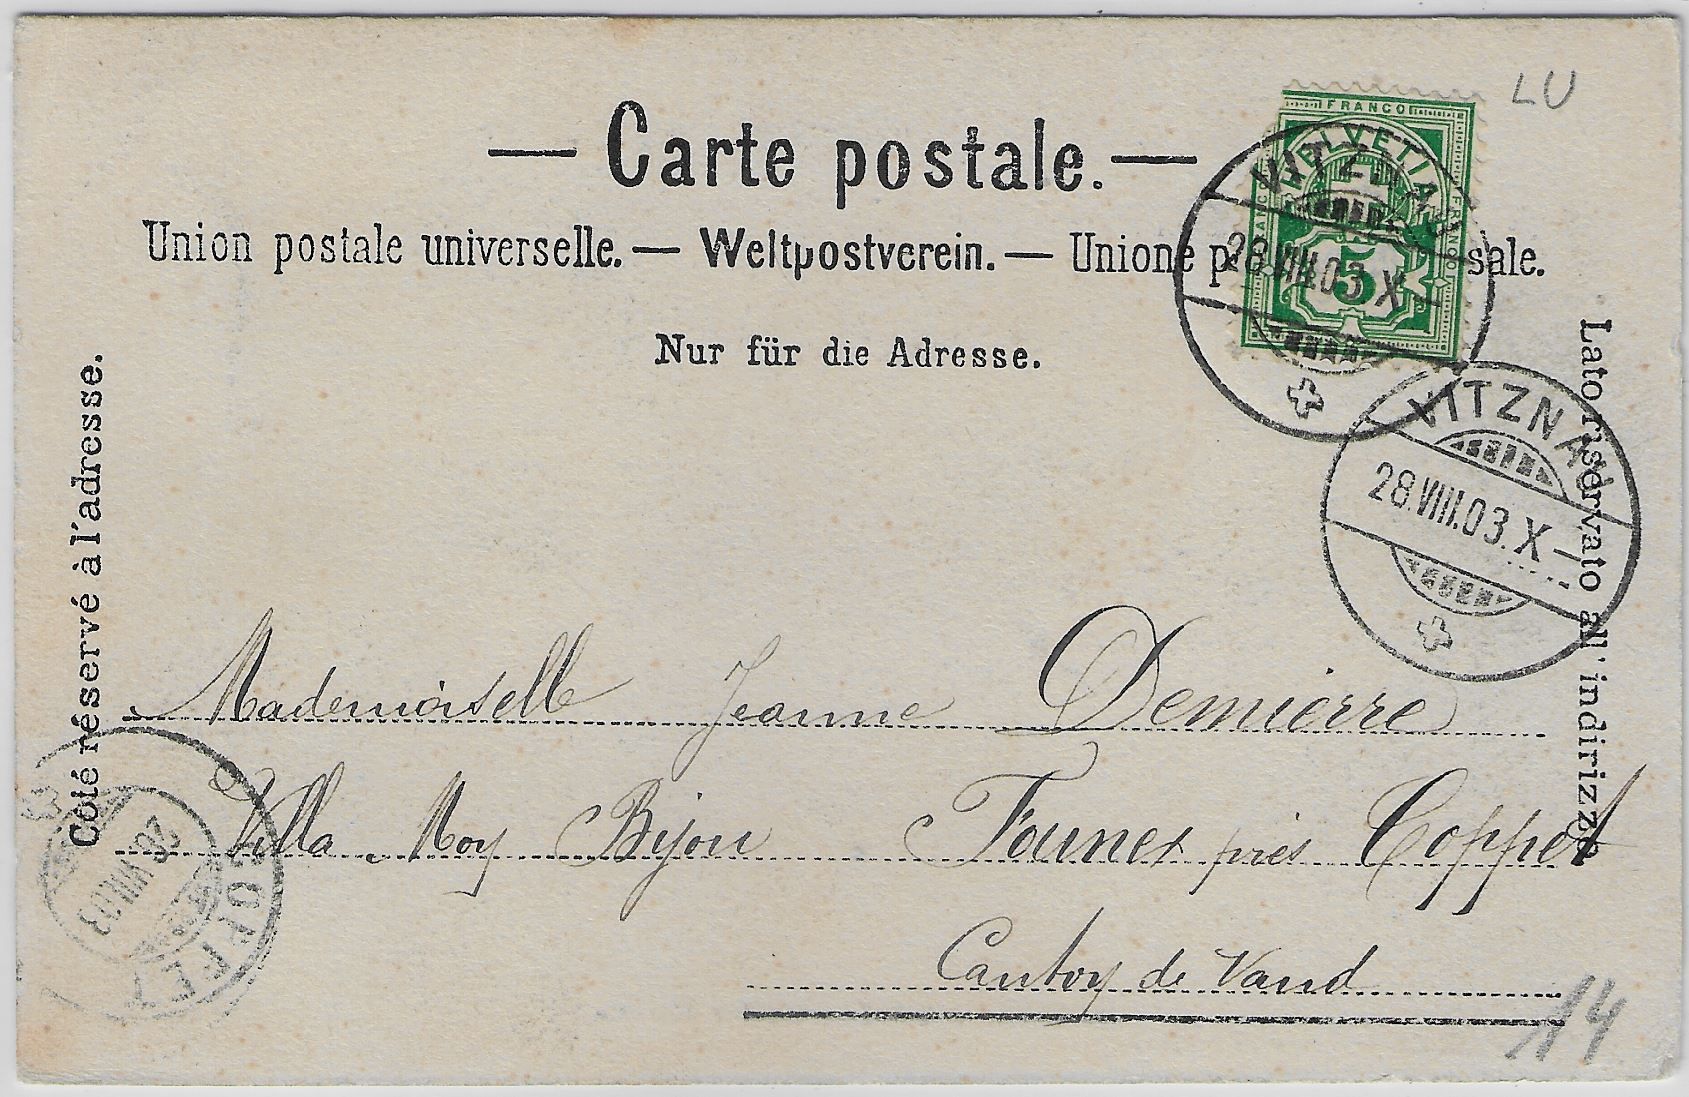 LU
— Carte postale. —
Union postale universelle. — Weltpostverein. — Unione p sale.
Nur für die Adresse.
Côté réservé à l'adresse.
Lato riservato all'indirizzo
FRANCO
HELVETIA
FRANCO
FRANCO
5
VITZNAU
28.VIII.03.X
VITZNAU
28.VIII.03.X
Mademoiselle Jeanne Demierre
Villa Moy Bijou Founex près Coppet
Canton de Vaud
COPPET
VIII.03
14